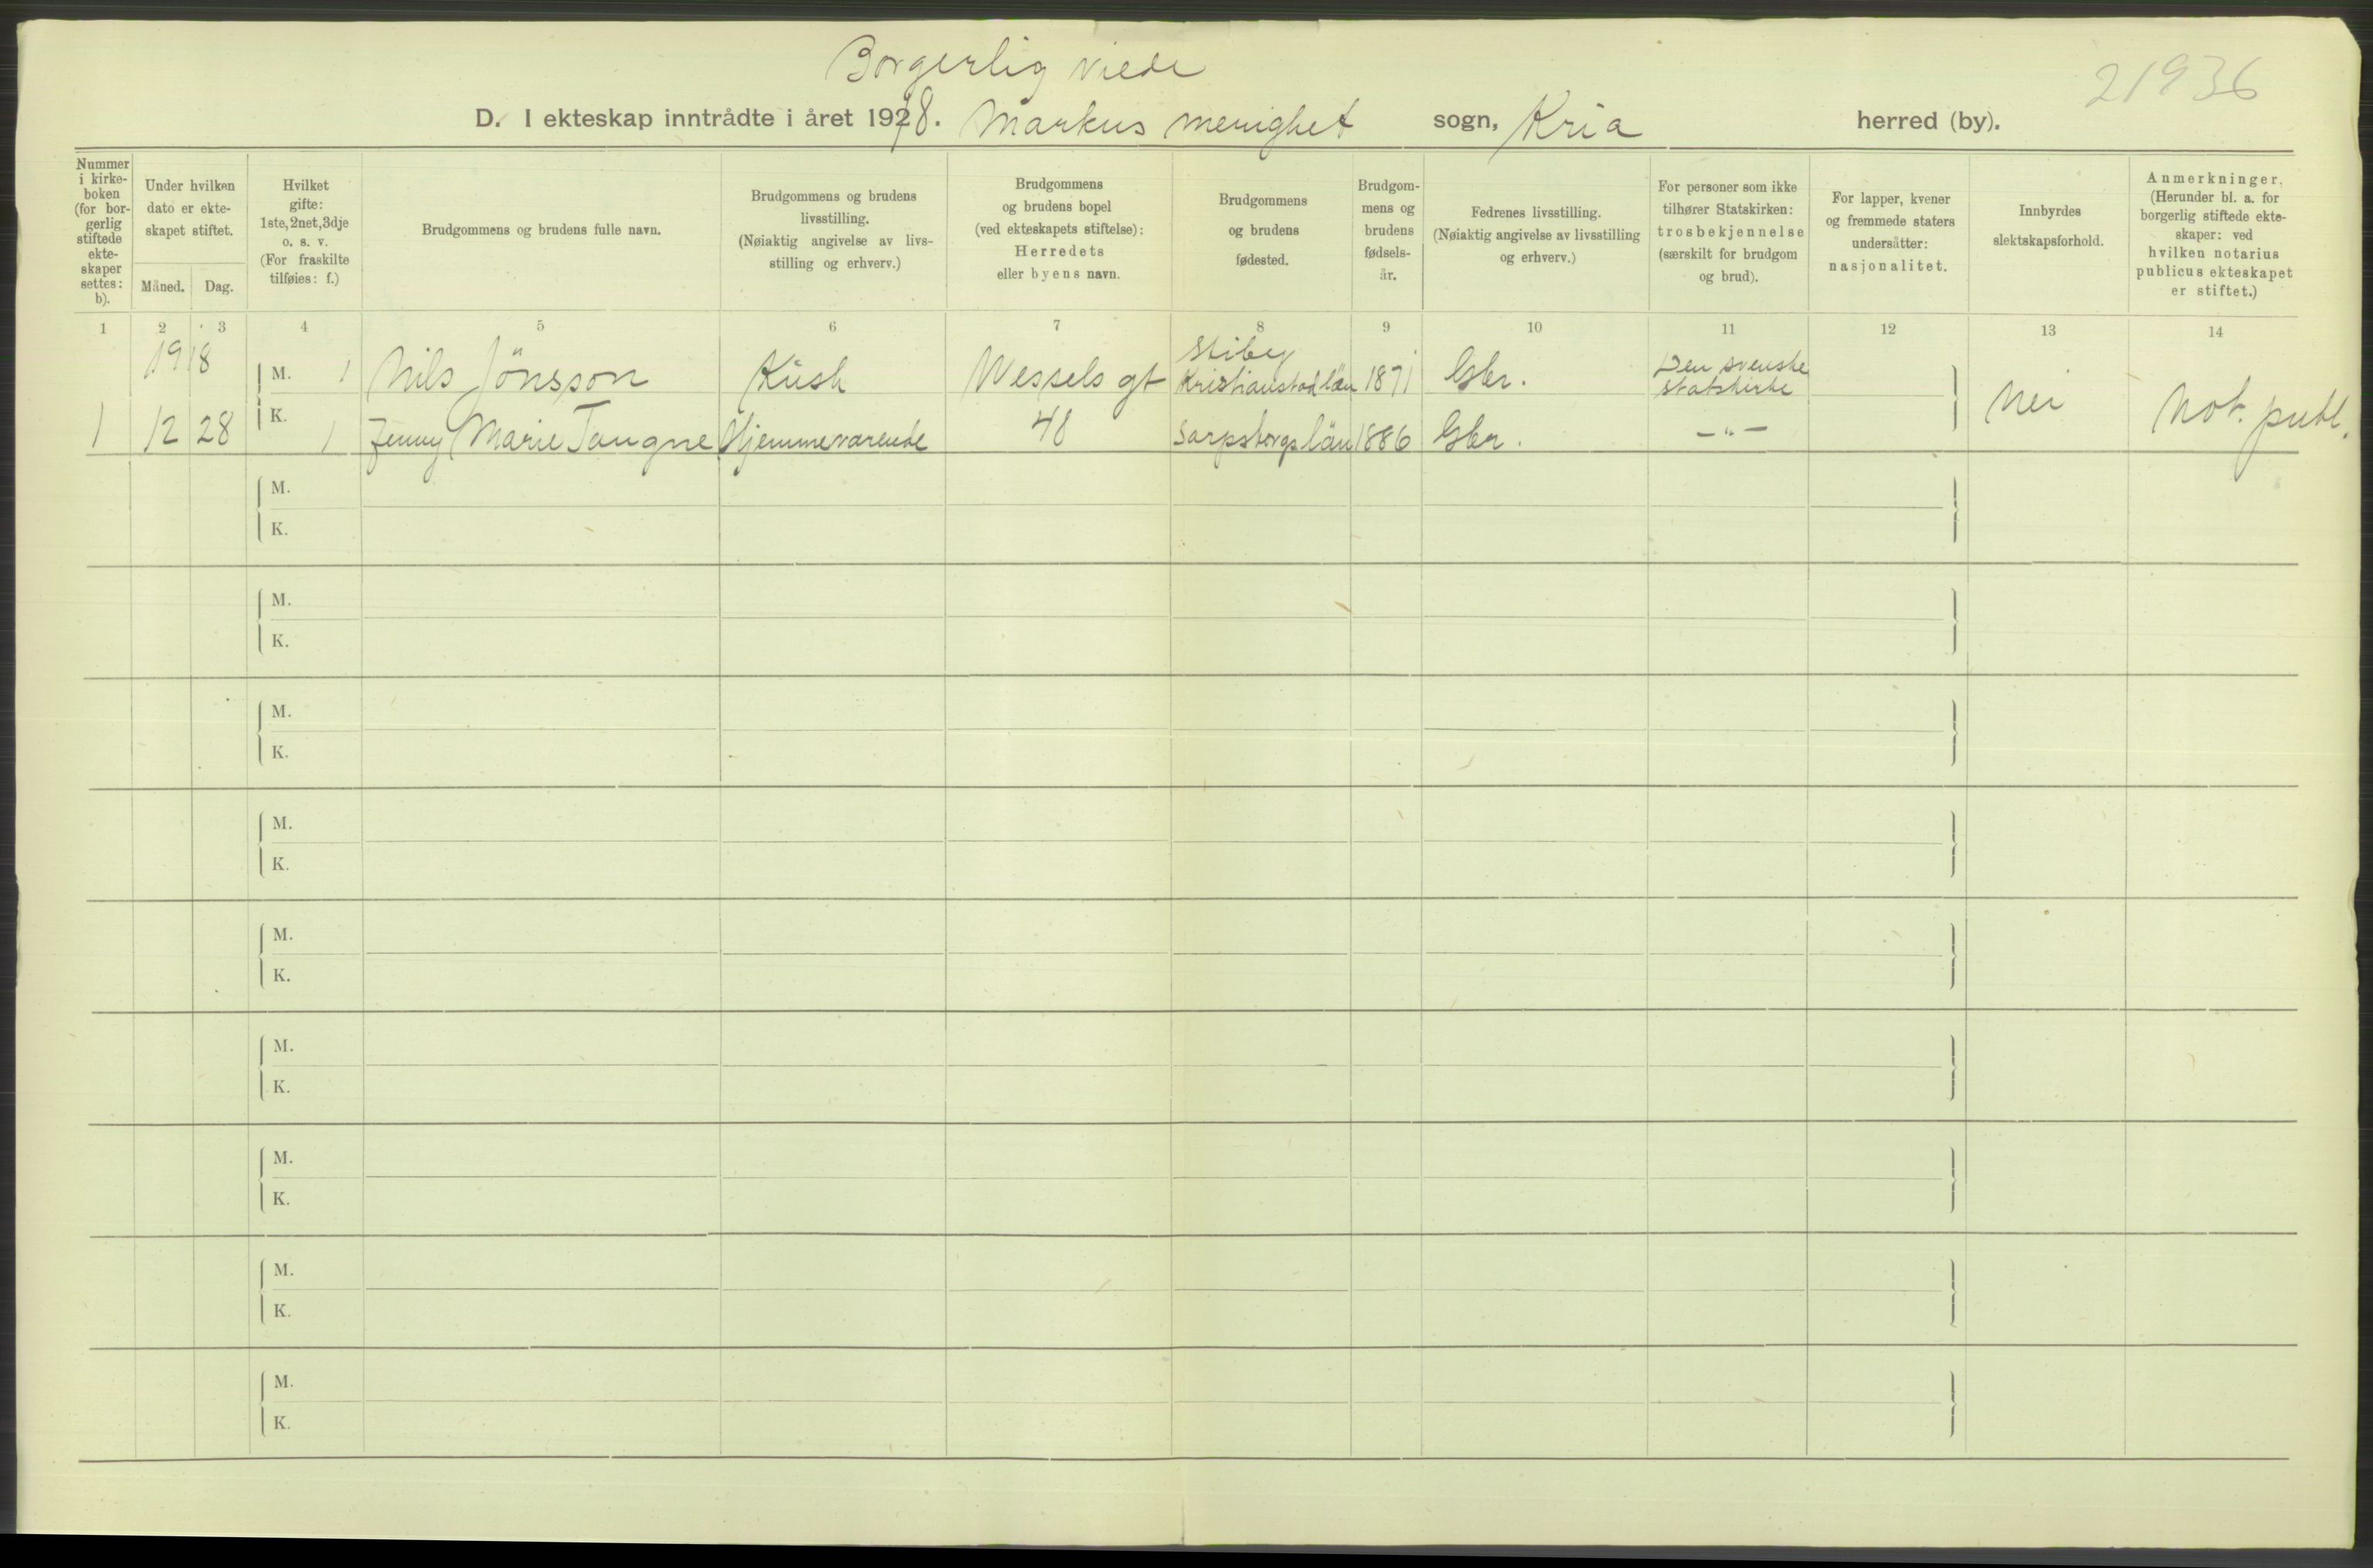 Borgerlig viede
21936
D. I ekteskap inntrådte i året 1918. Markus menighet sogn, Kria herred (by).
Nummer i kirke-boken (for bor-gerlig stiftede ekte-skaper settes: b).
Under hvilken dato er ekte-skapet stiftet.
Måned. Dag.
Hvilket gifte: 1ste, 2net, 3dje o. s. v. (For fraskilte tilføies: f.)
Brudgommens og brudens fulle navn.
Brudgommens og brudens livsstilling. (Nøiaktig angivelse av livs-stilling og erhverv.)
Brudgommens og brudens bopel (ved ekteskapets stiftelse): Herredets eller byens navn.
Brudgommens og brudens fødested.
Brudgom-mens og brudens fødsels-år.
Fedrenes livsstilling. (Nøiaktig angivelse av livsstilling og erhverv.)
For personer som ikke tilhører Statskirken: trosbekjennelse (særskilt for brudgom og brud).
For lapper, kvener og fremmede staters undersåtter: nasjonalitet.
Innbyrdes slektskapsforhold.
Anmerkninger. (Herunder bl. a. for borgerlig stiftede ekte-skaper: ved hvilken notarius publicus ekteskapet er stiftet.)
1 2 3 4 5 6 7 8 9 10 11 12 13 14
1918 M. 1 Nils Jönsson Kusk Wessels gt Stiby Kristianstad län 1871 Gbr. Den svenske statskirke
1 12 28 K. 1 Jenny Marie Tangne Hjemmeværende 48 Sarpsborgs län 1886 Gbr. -"- Nei Not. publ.
M.
K.
M.
K.
M.
K.
M.
K.
M.
K.
M.
K.
M.
K.
M.
K.
M.
K.